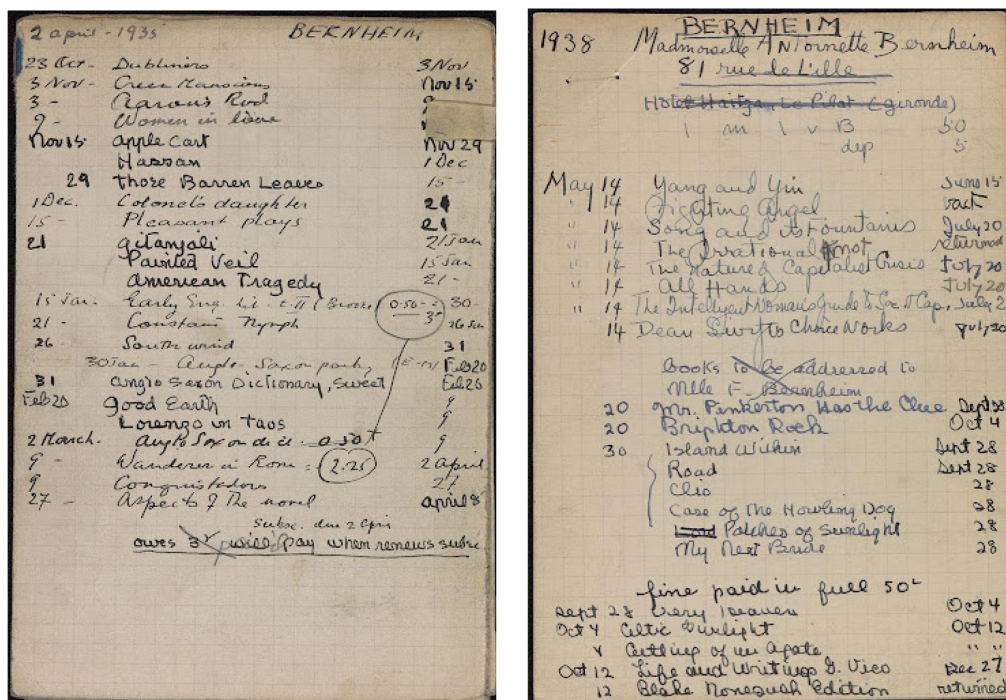 2 april - 1935 BERNHEIM
23 Oct - Dubliners 3 Nov
3 Nov - Green Mansions Nov 15
3 - Aaron's Rod 9
9 - Women in love
Nov 15 apple cart Nov 29
Hassan 1 Dec
29 those Barren Leaves 15 -
1 Dec. Colonel's daughter 21
15 - Pleasant plays 21
21 gitanjali 21 Jan
Painted Veil 15 Jan
American Tragedy 21 -
15 Jan. Early Eng. Lit. t. II (Brooke) 0.50 30 -
21 - Constant Nymph 3 26 Jan
26 South wind 31
30 Jan - Anglo-Saxon poetry Feb 20
31 anglo saxon Dictionary, Sweet Feb 20
Feb 20 good Earth 9
Lorenzo in Taos 9
2 March. anglo Saxon dict. 0.50 9
9 - Wanderer in Rome 2.25 2 april
9 Conquistadores 27
27 - Aspects of the novel april 8
Subsc. due 2 april
owes 3 will pay when renews subsc
BERNHEIM
1938 Madmoiselle ANTornette Bernheim
81 rue de L'ille
Hotel Le Pilat (gironde)
1 m 1 v B 50
dep 5
May 14 Yang and Yin June 15
" 14 Fighting Angel back
" 14 Song and its Fountains July 20
" 14 The Irrational Knot returned
" 14 The Nature of Capitalist Crisis July 20
" 14 All Hands July 20
" 14 The Intelligent Woman's Guide to Soc. & Cap. July 2
14 Dean Swift Choice Works July 20
books to be addressed to
Mlle F. Bernheim
20 Mr. Pinkerton Has the Clue Sept 28
20 Brighton Rock Oct 4
30 Island Within Sept 28
Road Sept 28
Clio 28
Case of the Howling Dog 28
Patches of Sunlight 28
My Next Bride 28
fine paid in full 50
Sept 28 Very Heaven Oct 4
Oct 4 Celtic Twilight Oct 12
Cutting of an Agate " "
Oct 12 Life and Writings G. Vico Dec 27
12 Blake Nonesuch Edition returned